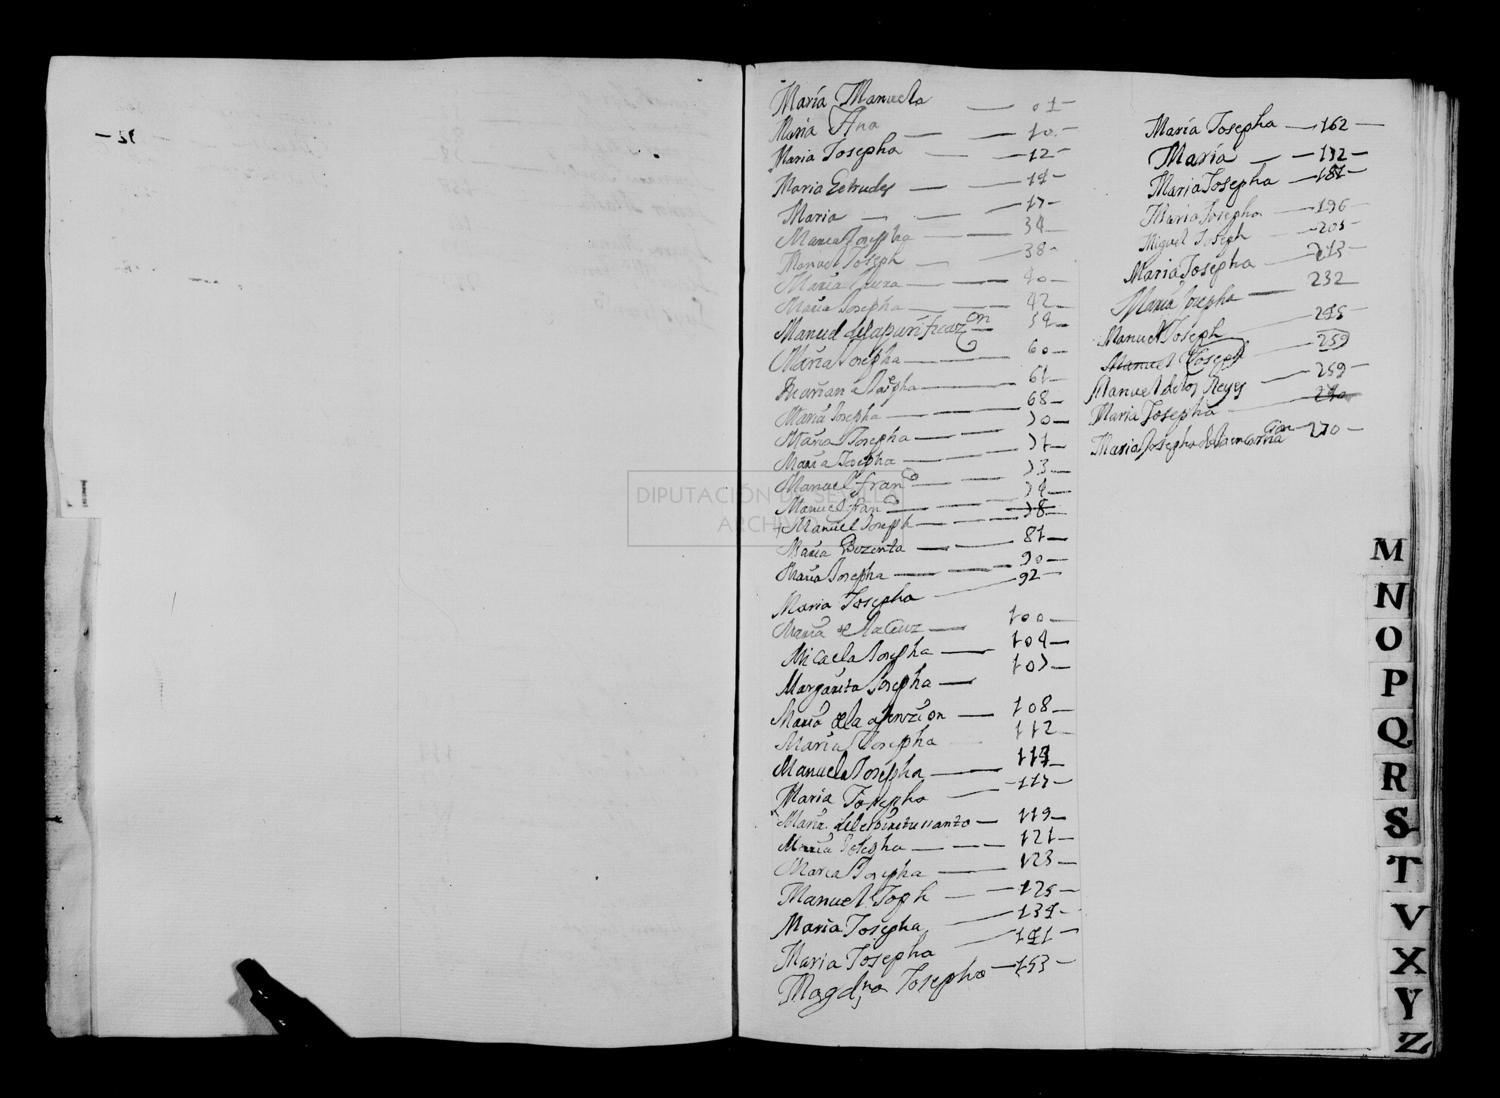 María Manuela — 01 —
Maria Ana — — 10 —
Maria Josepha — — 12 —
Maria Getrudes — — 14 —
Maria — — — 17 —
Maria Josepha — 34 —
Manuel Joseph — 38 —
Maria — — 40 —
Maria Josepha — — 42 —
Manuel dela purificaz.on — 54 —
Maria Josepha — 60 —
Mariana Josepha — 61 —
Maria Josepha — — 68 —
Maria Josepha — — 70 —
Maria Josepha — — 71 —
Manuel fran.co — 73 —
Manuel fran.co — 74 —
Manuel Joseph — — 78 —
Maria Bizenta — — 81 —
Maria Josepha — — — 90 —
Maria Josepha — 92 —
Maria de la Cruz — 100 —
Micaela Josepha — 104 —
Margarita Josepha — 107 —
Maria dela asenzion — 108 —
Maria Josepha — 112 —
Manuela Josepha — — 114 —
Maria Josepha — — 117 —
Maria del espiritu santo — 119 —
Maria Josepha — — — 121 —
Maria Josepha — — 123 —
Manuel Joph — — 125 —
Maria Josepha — — 134 —
Maria Josepha — 141 —
Magd.na Josepha — 153 —
María Josepha — 162 —
María — — 172 —
Maria Josepha — 181 —
Maria Josepha — 196 —
Miguel Joseph — 205 —
Maria Josepha — 213 —
Maria Josepha — 232
Manuel Joseph — 245 —
Manuel Joseph — 259
Manuel de los Reyes — 259 —
Maria Josepha — 270
Maria Josepha dela encarna.cion 270 —
M
N
O
P
Q
R
S
T
V
X
Y
Z
L
DIPUTACIÓN DE SEVILLA
ARCHIVO